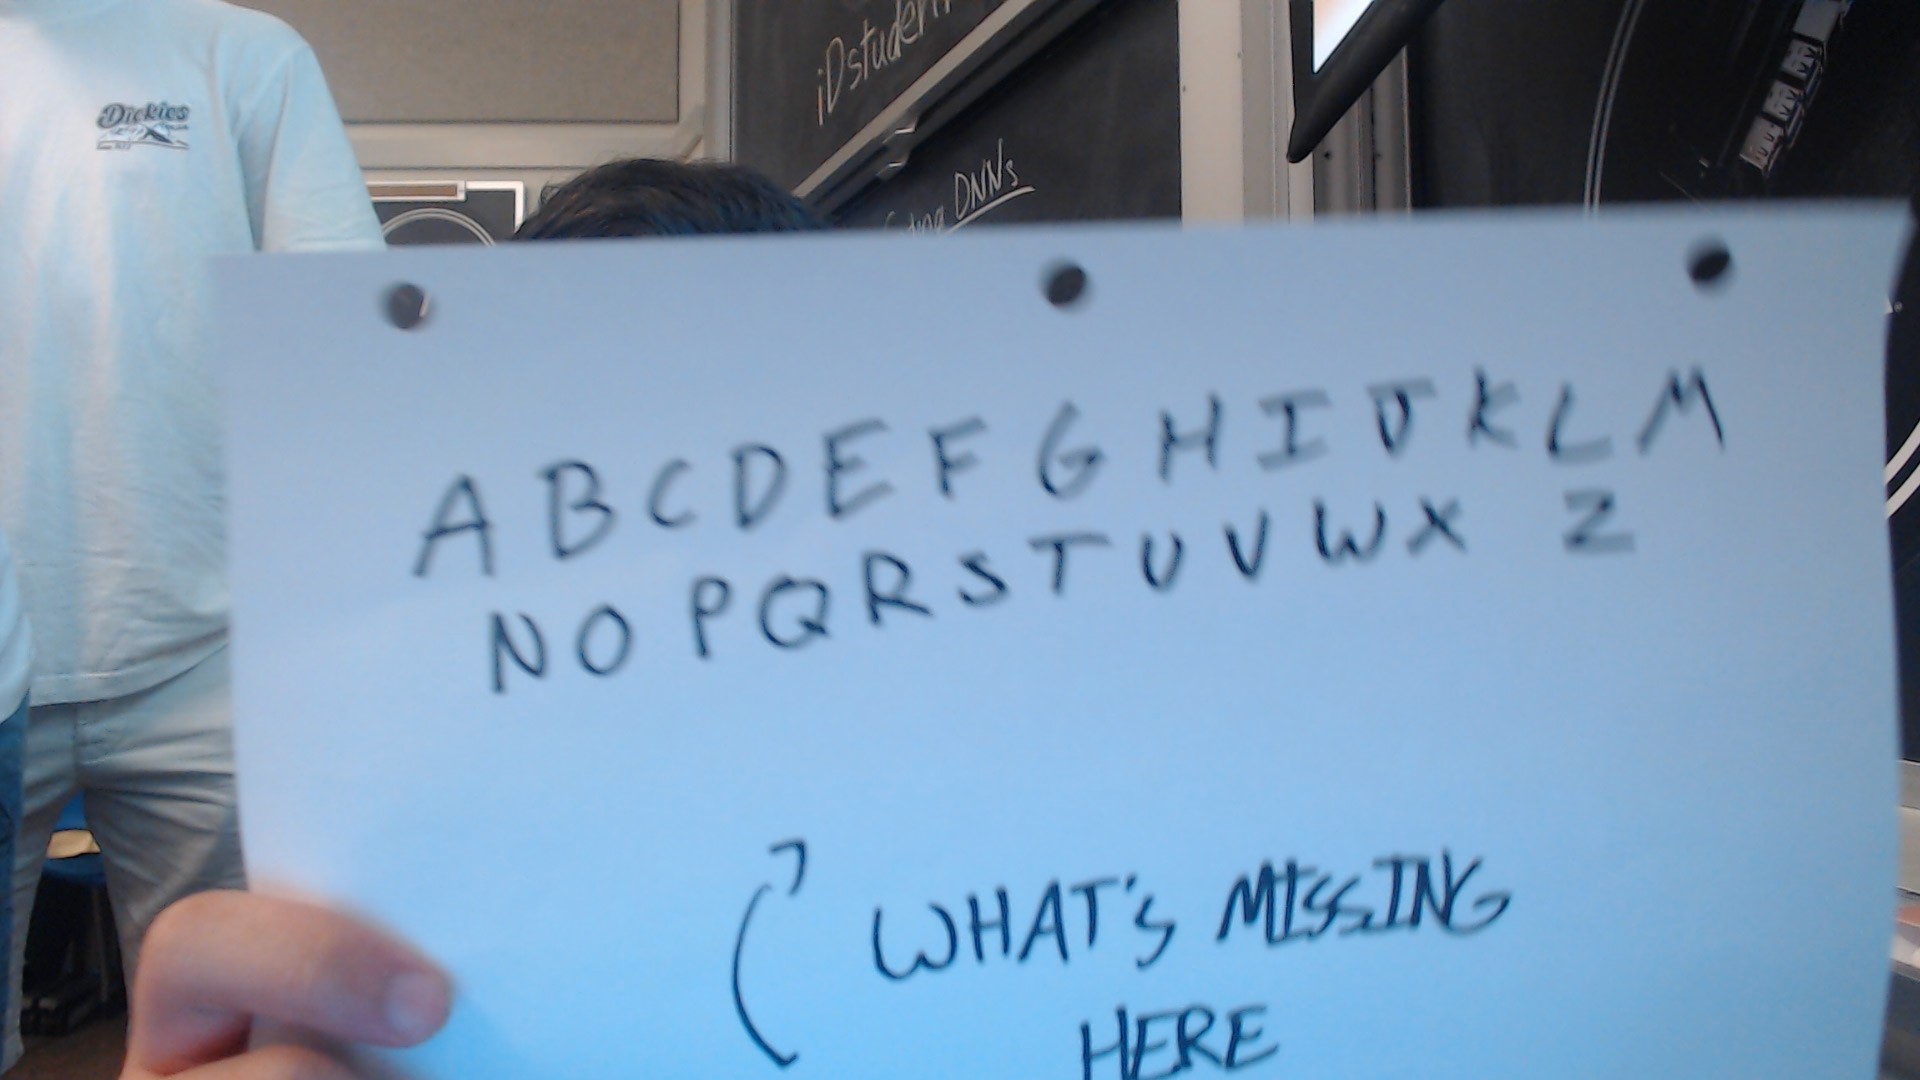 Dickies
iDstuden
DNNs
A B C D E F G H I J K L M
N O P Q R S T U V W X Z
WHAT'S MISSING
HERE